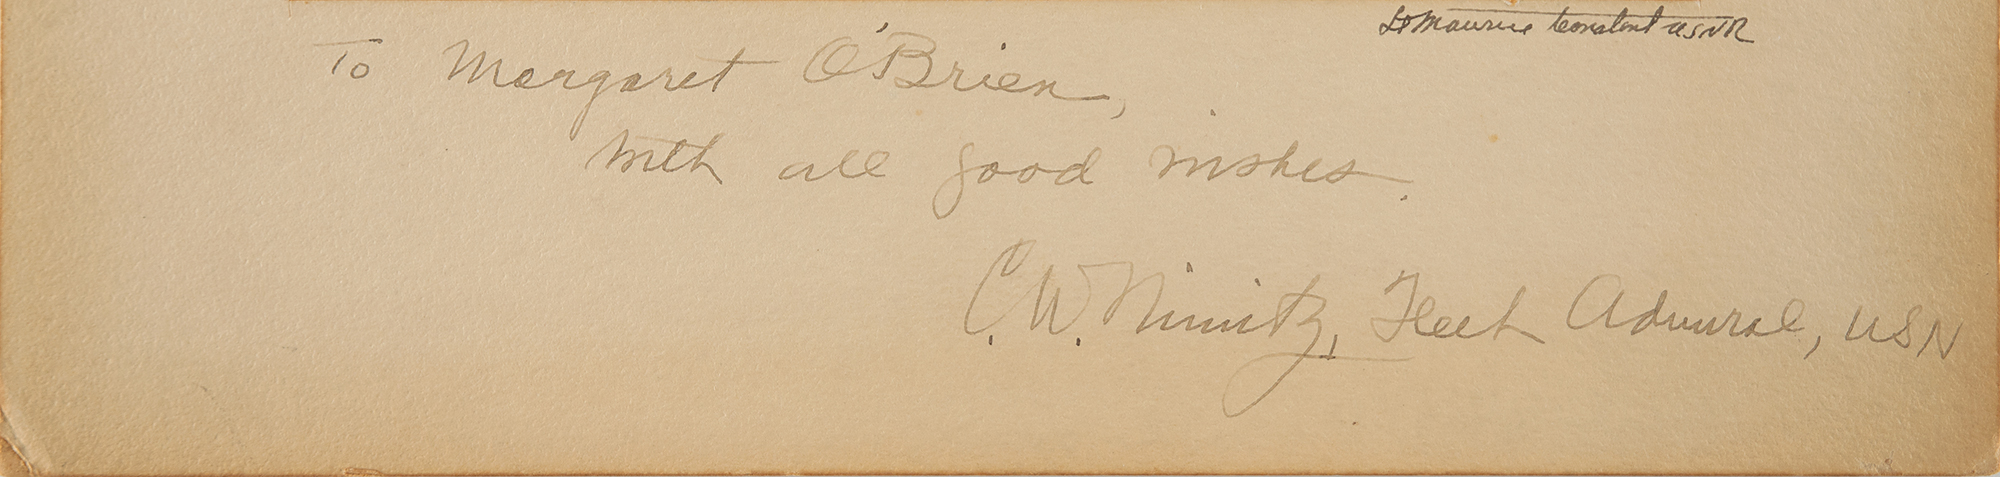 Lt Maurice Constant USNR
To Margaret O'Brien,
With all good wishes.
C. W. Nimitz, Fleet Admiral, USN